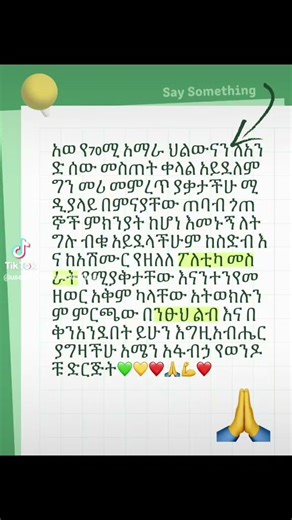 Say Something
አወ የ70ሚ አማራ ህልውናን ለአን
ድ ሰው መስጠት ቀላል አይደለም
ግን መሪ መምረጥ ያቃታችሁ ሚ
ዲያላይ በምናያቸው ጠባብ ጎጠ
ኞች ምክንያት ከሆነ እመኑኝ ለት
ግሉ ብቁ አይደላችሁም ከስድብ እ
ና ከአሽሙር የዘለለ ፖለቲካ መስ
ራት የሚያቅታቸው እናንተንየመ
ዘወር አቅም ካላቸው አትወክሉን
ም ምርጫው በንፁህ ልብ እና በ
ቅንአንደበት ይሁን እግዚአብሔር
ያግዛችሁ አሜን አፋብኃ የወንዶ
ቹ ድርጅት💚💛❤️🙏💪❤️
TikTok